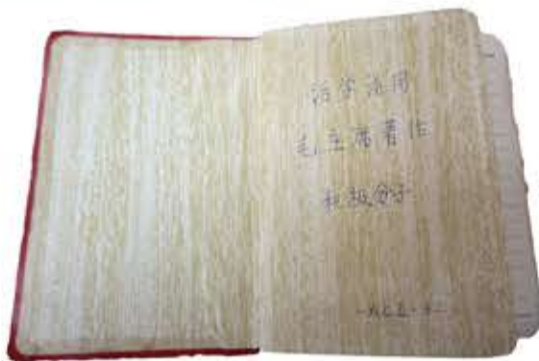 活学活用
毛主席著作
积极分子
一九七五·